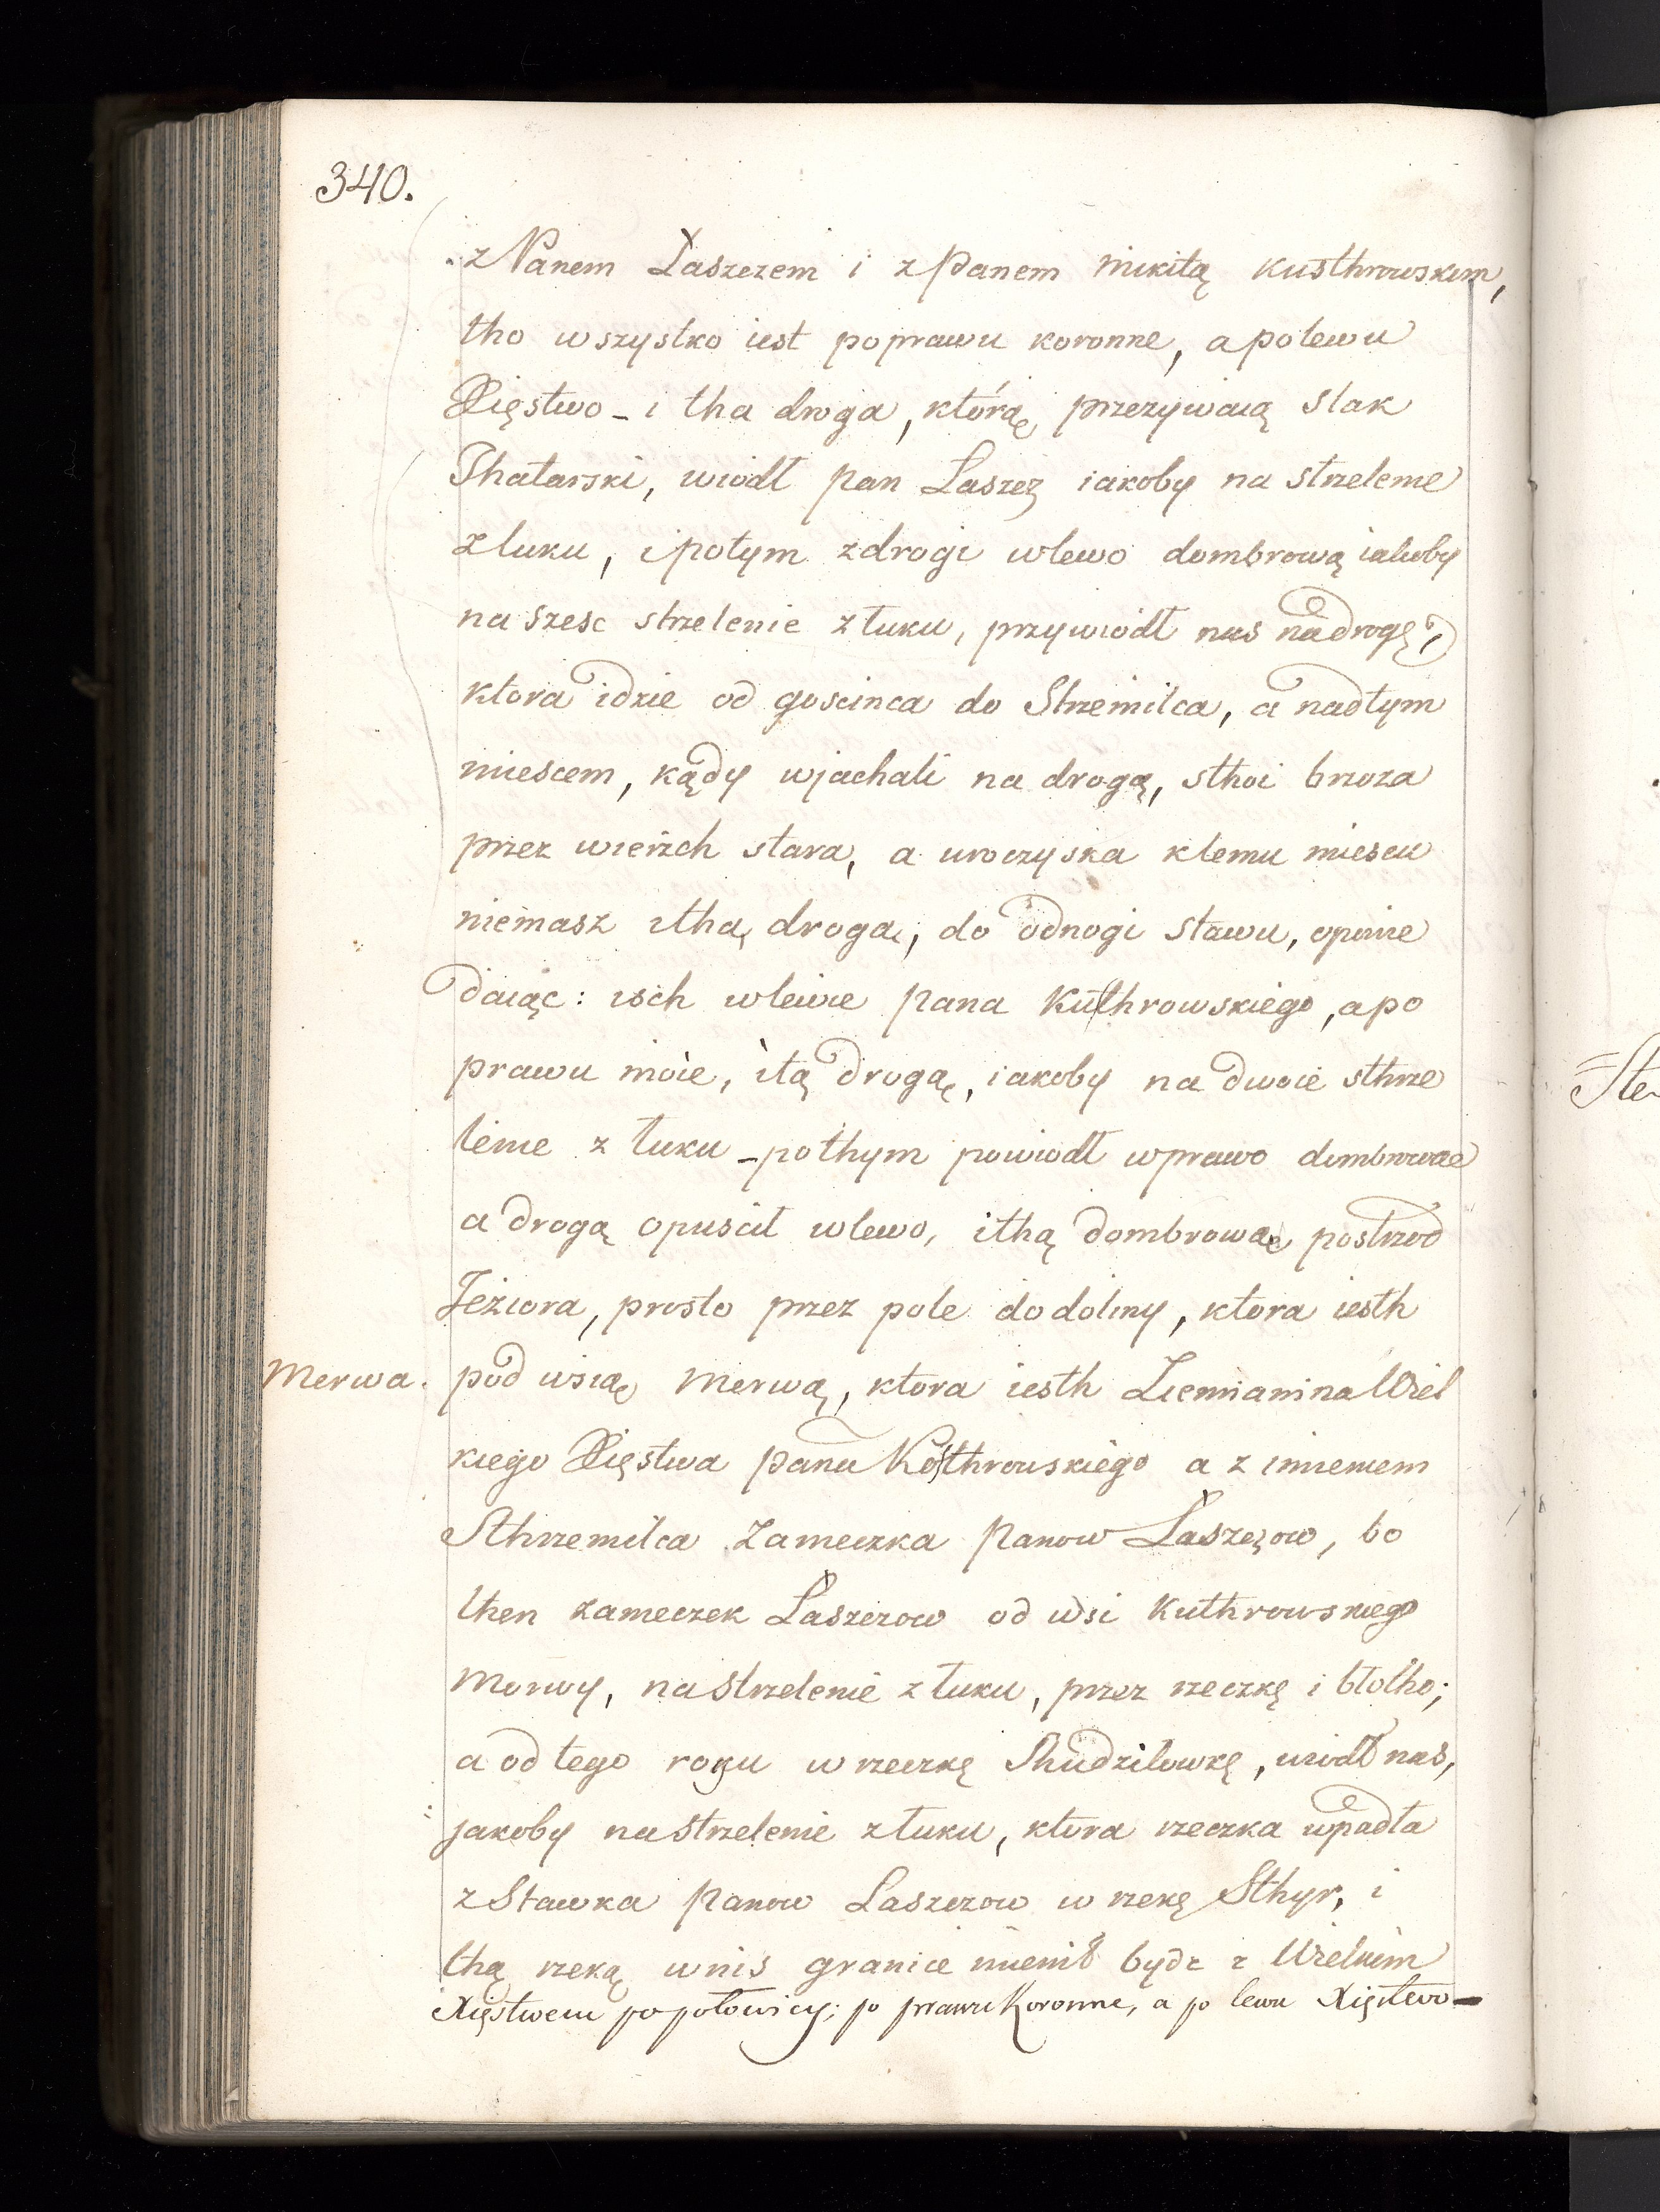 340.
z Panem Łaszczem i z panem mikitą kusthrowskim,
tho wszystko iest poprawu koronne, apolewu
Xięstwo - i tha droga, którą przezywaią slak
Thatarski, wiódł pan Laszcz iakoby na strzelenie
zluku, ipotym zdrogi wlewo dombrową iakoby
na szesc strzelenie złuku, przywiodł nas nadrogę,
ktora idzie od goscinca do Strzemilca, a nadtym
miescem, kądy wjachali na drogą, sthoi brzoza
przez wierzch stara, a uroczyska ktemu miescu
niemasz ithą drogą, do odnogi stawu, opowie
daiąc: isch wlewie pana Kuthrowskiego, apo
prawu moie, itą drogą, iakoby na dwoie sthrze
lenie z łuku - pothym powiodł wprawo dombrową
a drogą opuscił wlewo, ithą dombrową postrzod
Jeziora, prosto przez pole do doliny, ktora iesth
Merwa. pod wsią Merwą, ktora iesth Ziemianina Wiel
kiego Xięstwa pana Kosthrowskiego a z imieniem
Sthrzemilca Zameczka Panow Łaszczow, bo
then zameczek Łaszczow od wsi Kuthrowskiego
Merwy, na strzelenie z łuku, przez rzeczkę i błotho;
a od tego rogu w rzeczkę Shudzilowkę, wiodł nas,
jakoby nastrzelenie złuku, ktora rzeczka wpadła
z Stawka Panow Laszczow w rzekę Sthyr, i
thą rzeką wnis granice mienił bydz z Wielkim
Xięstwem po połowicy; po prawu Koronne, a po lewu Xięstwo -
Ste